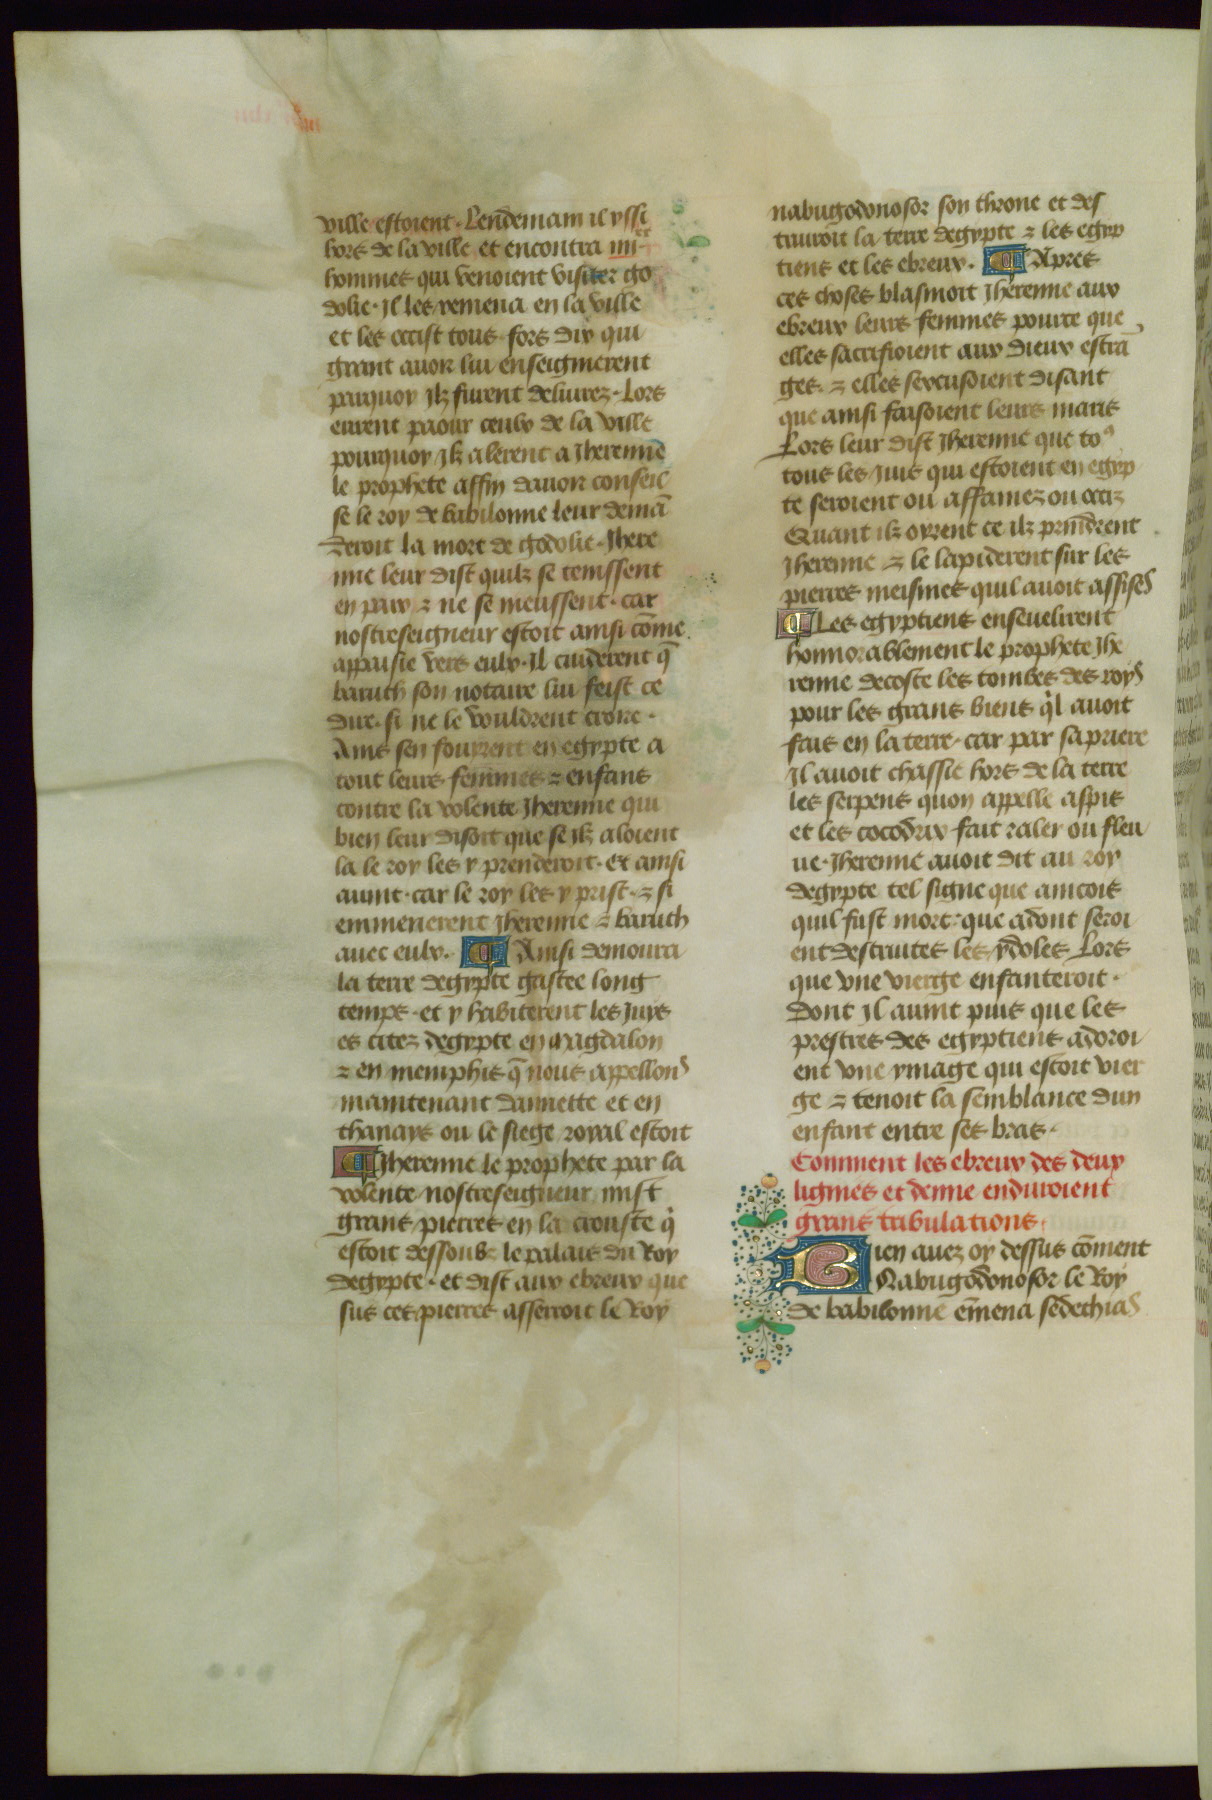 ville estoient. Lendemain il yssi
hors de la ville et encontra iiii.xx
hommes qui venoient visiter go
dolie. Il les remena en la ville
et les occist tous fors dix qui
grant avoir lui enseignerent
parquoy ilz furent delivrez. Lors
eurent paour ceulx de la ville
pourquoy ilz alerent a Iheremie
le prophete affin davoir conseil
se le roy de babilonne leur demā
deroit la mort de godolie. Ihere
mie leur dist quilz se tenissent
en paix ⁊ ne se meussent. car
nostreseigneur estoit ainsi cōme
appaisie vers eulx. Il cuiderent q̄
baruth son notaire lui feist ce
dire. si ne le vouldrent croire.
Ains sen fouyrent en egypte a
tout leurs femmes ⁊ enfans
contre la volente Iheremie qui
bien leur disoit que se ilz aloient
la le roy les y prenderoit. Et ainsi
avint. car le roy les y prist. ⁊ si
emmenerent Iheremie ⁊ baruth
avec eulx. ¶ Ainsi demoura
la terre degypte gastee long
temps. et y habiterent les Juys
es citez degypte en magdalon
⁊ en memphis q̄ nous appellons
maintenant damette et en
thanays ou le siege royal estoit
¶ Iheremie le prophete par la
volente nostreseigneur mist
grans pierres en la crouste q̇
estoit dessoubz le palais du Roy
degypte. et dist aux ebreux que
sus ces pierres asserroit le Roy
nabugodonosor son throne et des
truiroit la terre degypte ⁊ les egyp
tiens et les ebreux. ¶ Apres
ces choses blasmoit Iheremie aux
ebreux leurs femmes pource que
elles sacrifioient aux dieux estrā
ges. ⁊ elles sexcusoient disant
que ainsi faisoient leurs maris
Lors leur dist Iheremie que to⁹
tous les Juis qui estoient en egyp
te seroient ou affamez ou occiz
Quant ilz oyrent ce ilz prindrent
Iheremie ⁊ le lapiderent sur les
pierres meismes quil avoit assises
¶ Les egyptiens ensevelirent
honnorablement le prophete Ihe
remie decoste les tombes des roys
pour les grans biens q̇l avoit
fais en la terre. car par sa priere
Il avoit chassie hors de la terre
les serpens quon appelle aspis
et les cocodrix fait raler ou fleu
ve. Iheremie avoit dit au roy
degypte tel signe que aincois
quil fust mort. que adont seroi
ent destruites les ydoles. Lors
que une vierge enfanteroit.
Dont il avint puis que les
prestres des egyptiens adoroi
ent une ymage qui estoit vier
ge ⁊ tenoit la semblance dun
enfant entre ses bras.
Comment les ebreux des deux
lignies et demie enduroient
grans tribulations.
Bien avez oy dessus cōment
Nabugodonosor le Roy
de babilonne ēmena sedechias